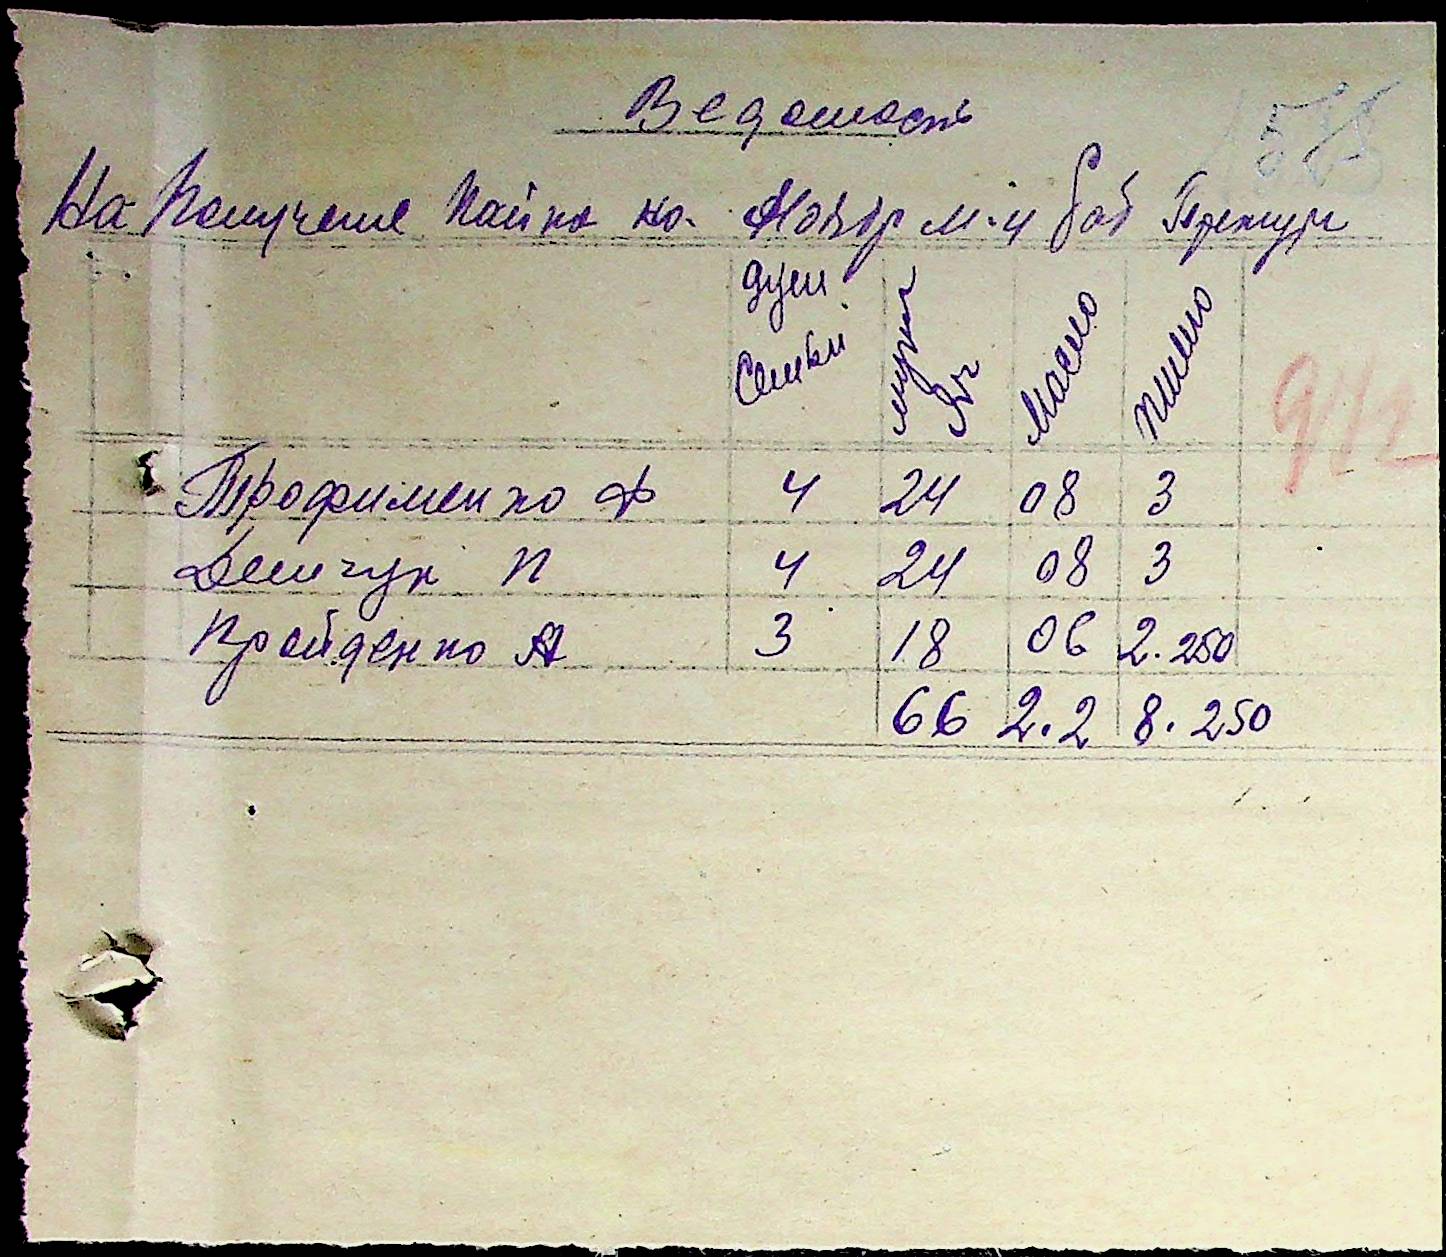 Ведомость
На Получение Пайка на Ноябр м-ц раб Прокур
душ Семьи мука кг Масло пшено
Трофименко Ф 4 24 08 3
Демчук П 4 24 08 3
Кройденко А 3 18 06 2.250
66 2.2 8.250